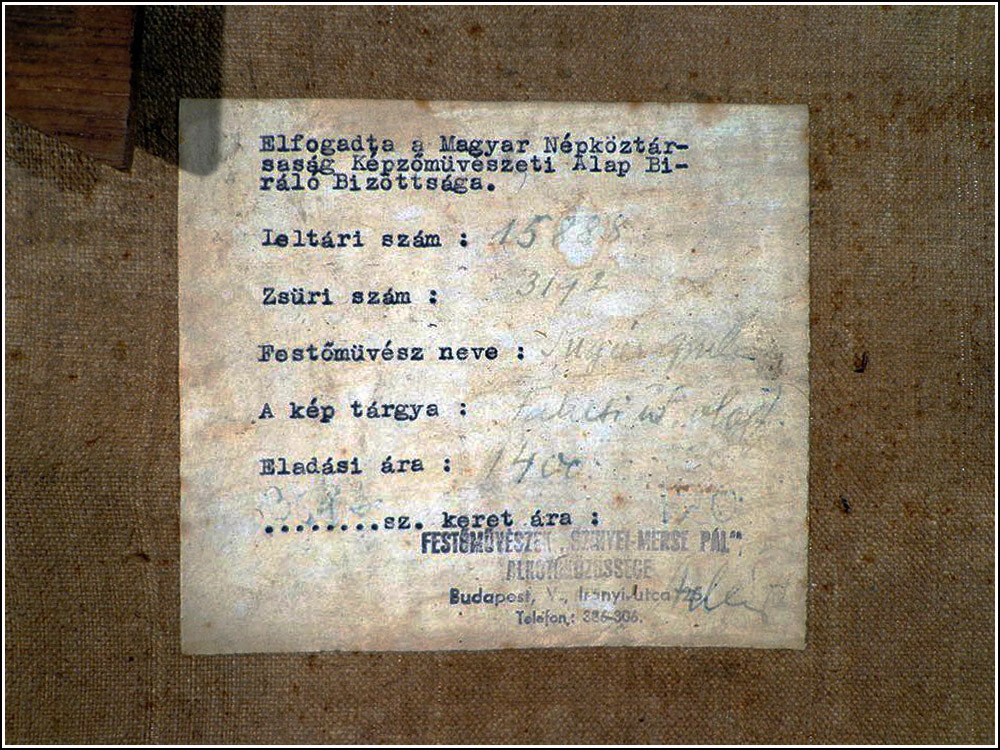 Elfogadta a Magyar Népköztár-
saság Képzőmüvészeti Alap Bi-
ráló Bizottsága.
Leltári szám :
Zsüri szám : 3192
Festőmüvész neve :
A kép tárgya :
Eladási ára : 1400
........sz. keret ára :
FESTŐMŰVÉSZEK „SZINYEI-MERSE PÁL"
ALKOTÓKÖZÖSSÉGE
Budapest, V., Irányi-utca 25.
Telefon: 386-306.